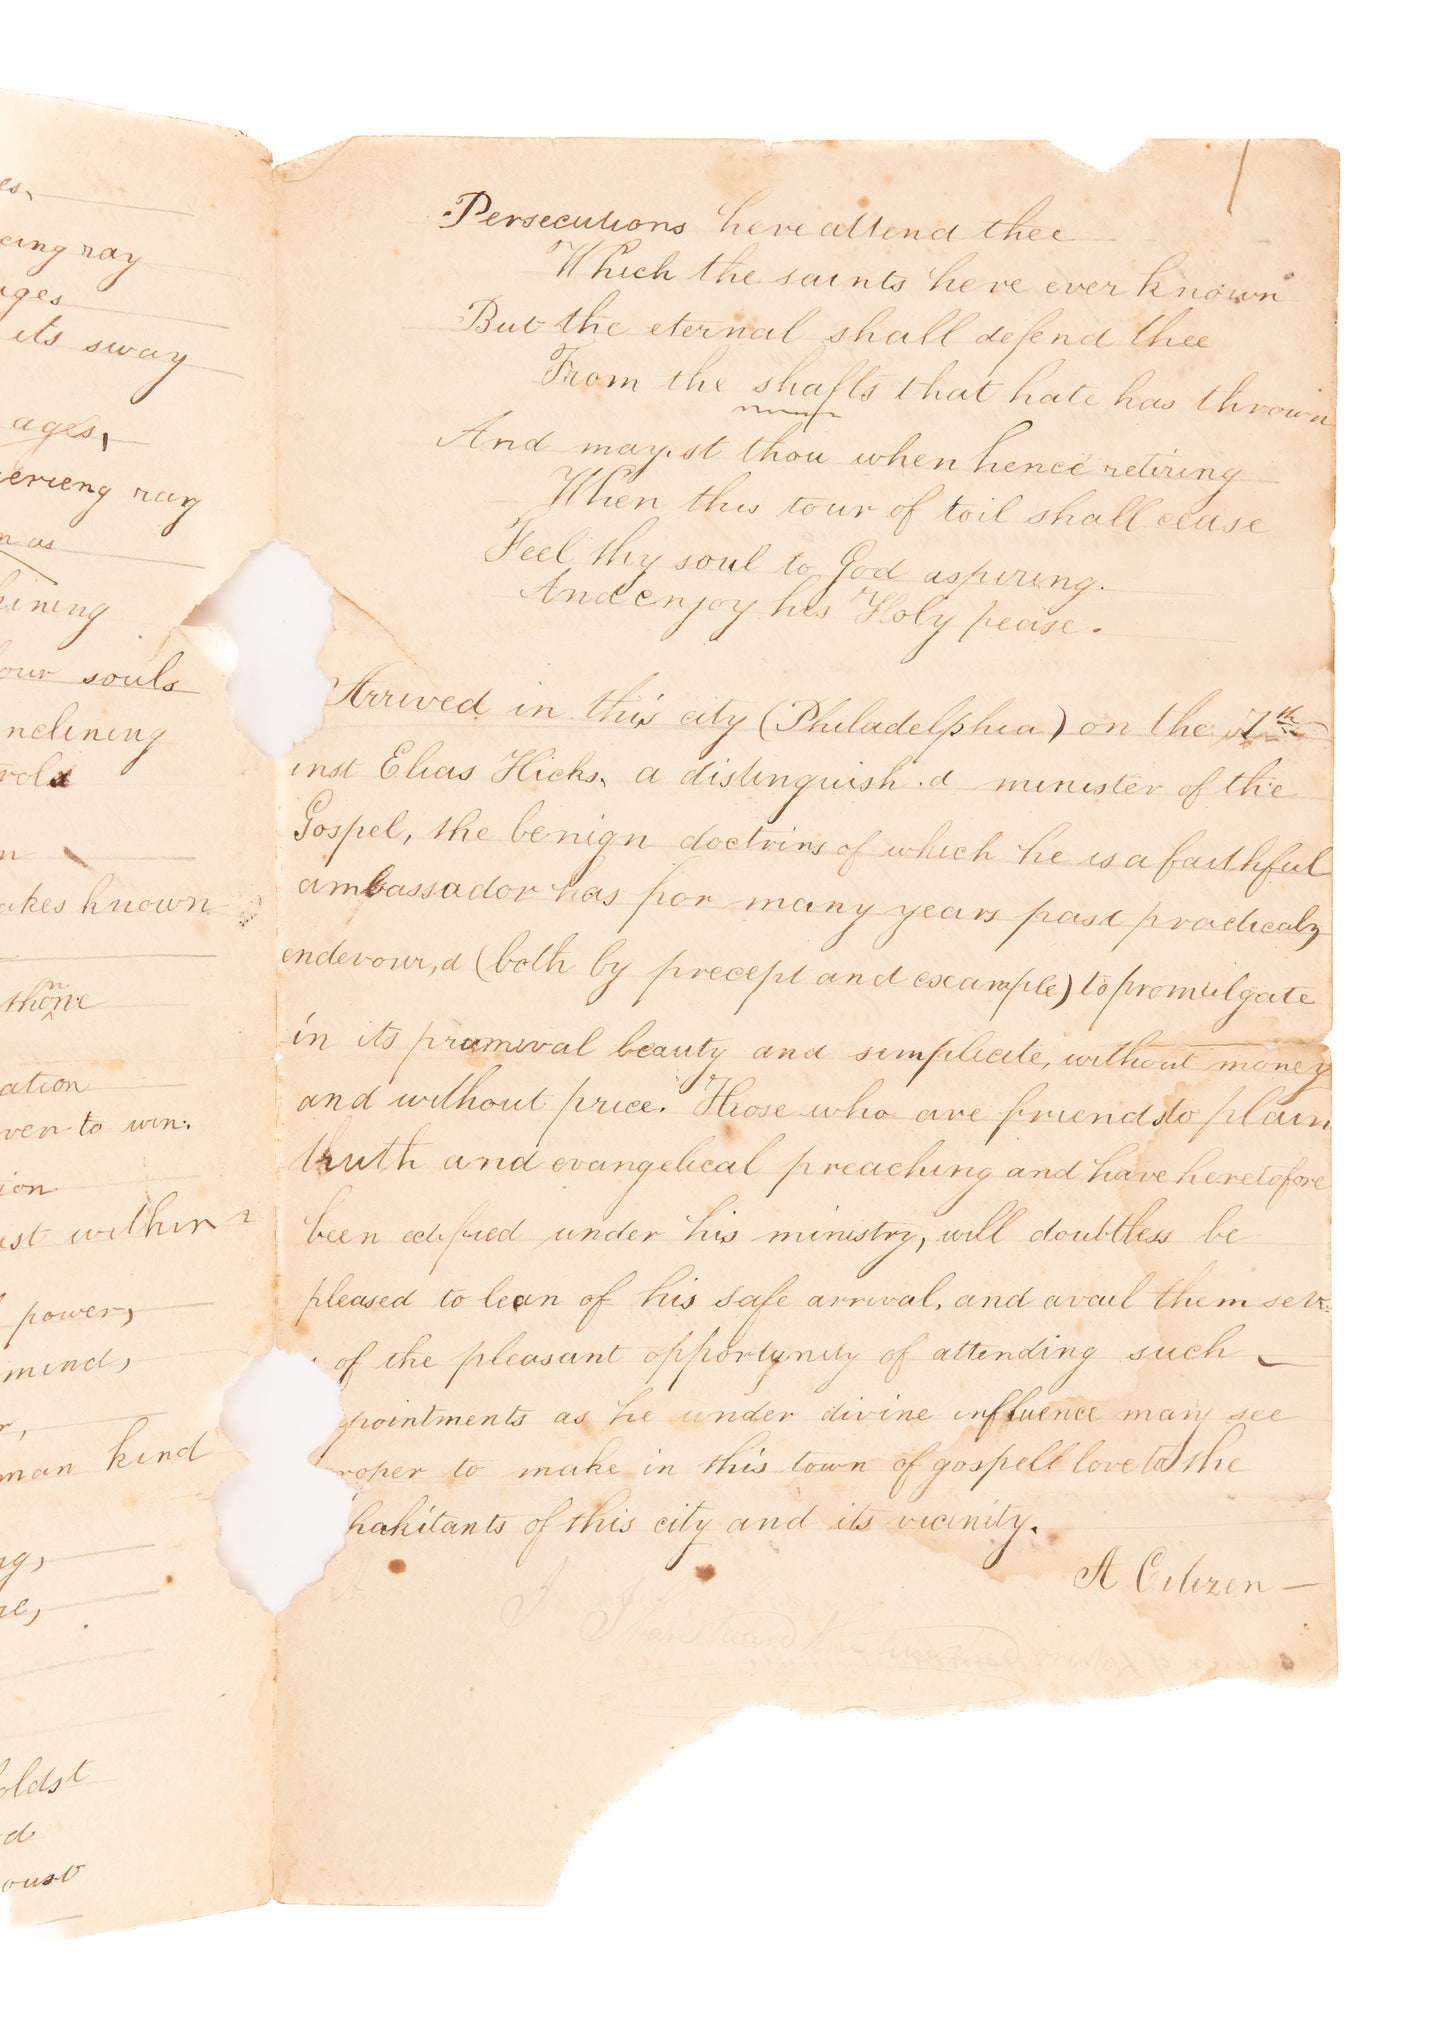 es,
cing ray
ages
its sway
ages,
ierieng ray
n as
hining
our souls
nclining
n
akes known
ation
ven to win.
ion
ist within
power,
mind,
r,
man kind
ng,
ne,
oldst
d
oust
Persecutions here attend thee
Which the saints here ever known
But the eternal shall defend thee
From the shafts that hate has thrown
And may,st thou when hence retiring
When this tour of toil shall cease
Feel thy soul to God aspiring.
And enjoy his Holy pease.
Arrived in this city (Philadelphia) on the 7th
inst Elias Hicks, a distinguish.d minister of the
Gospel, the benign doctrins of which he is a faithful
ambassador has for many years past practicaly
endevour,d (both by precept and example) to promulgate
in its primeval beauty and simplicite, without money
and without price. Those who are friends to plain
truth and evangelical preaching and have heretofore
been edified under his ministry, will doubtless be
pleased to lean of his safe arrival, and avail them selv
of the pleasant opportunity of attending such
pointments as he under divine influence may see
roper to make in this town of gospell love to the
habitants of this city and its vicinity.
A Citizen —